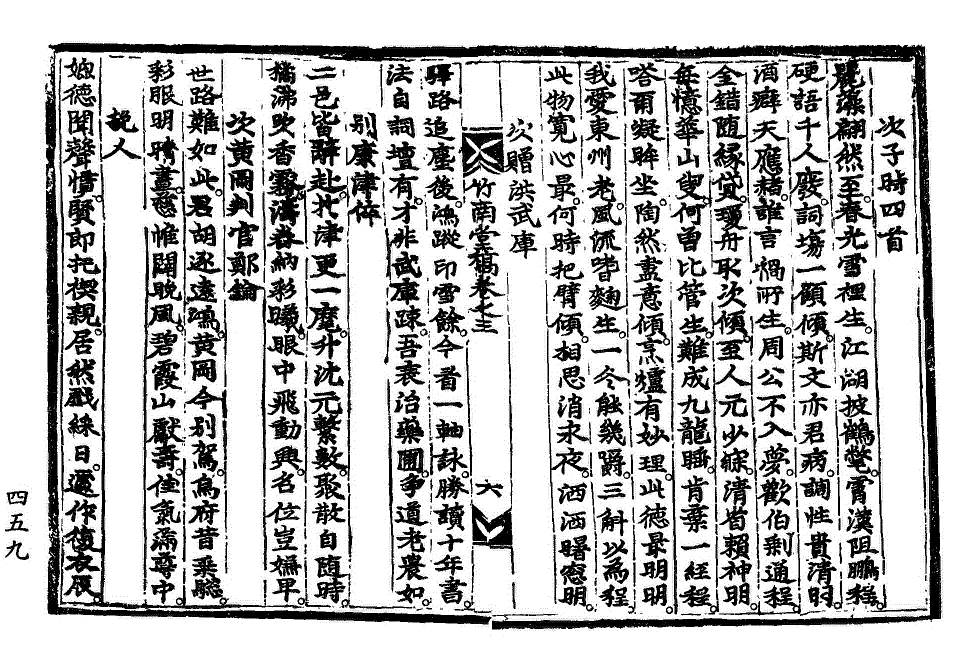 次子時四首
麗藻翩然至春光雪裡生江湖披鶴氅霄漢阻鵬程
硬語千人廢詞塲一顧傾斯文亦君病調性貴清明
酒癖天應赭誰言禍所生周公不入夢歡伯剩通程
金錯随緣貸瓊舟取次傾至人元少寐清省賴神明
每憶華山叟何曾比管生難成九龍睡肯棄一經程
嗒爾凝眸坐陶然盡意傾烹爐有妙理此德最明明
我愛東州老風流嗜麴生一冬能幾爵三斛以為程
此物寬心最何時把臂傾相思消永夜洒洒曙窓明
次贈洪武庫
竹南堂稿卷之三
六
驛路追塵後鴻蹤印雪餘今看一軸詠勝讀十年書
法自詞壇有才非武庫踈吾衰治藥圃爭道老農如
别康津倅
二邑皆辭赴北津更一麾升沈元繫數聚散自随時
橘沸吹香霧濤春納彩曦眼中飛動興名位豈嫌卑
次黄岡判官鄭錀
世路難如此君胡逐遠鴻黄岡今别駕烏府昔乗驄
彩眼明聘畫慈惟闢晚風碧霞山獻壽佳氣滿尊中
挽人
婉德聞聲惜賢郎托襖親居然戲綵日還作復衣辰
四五九